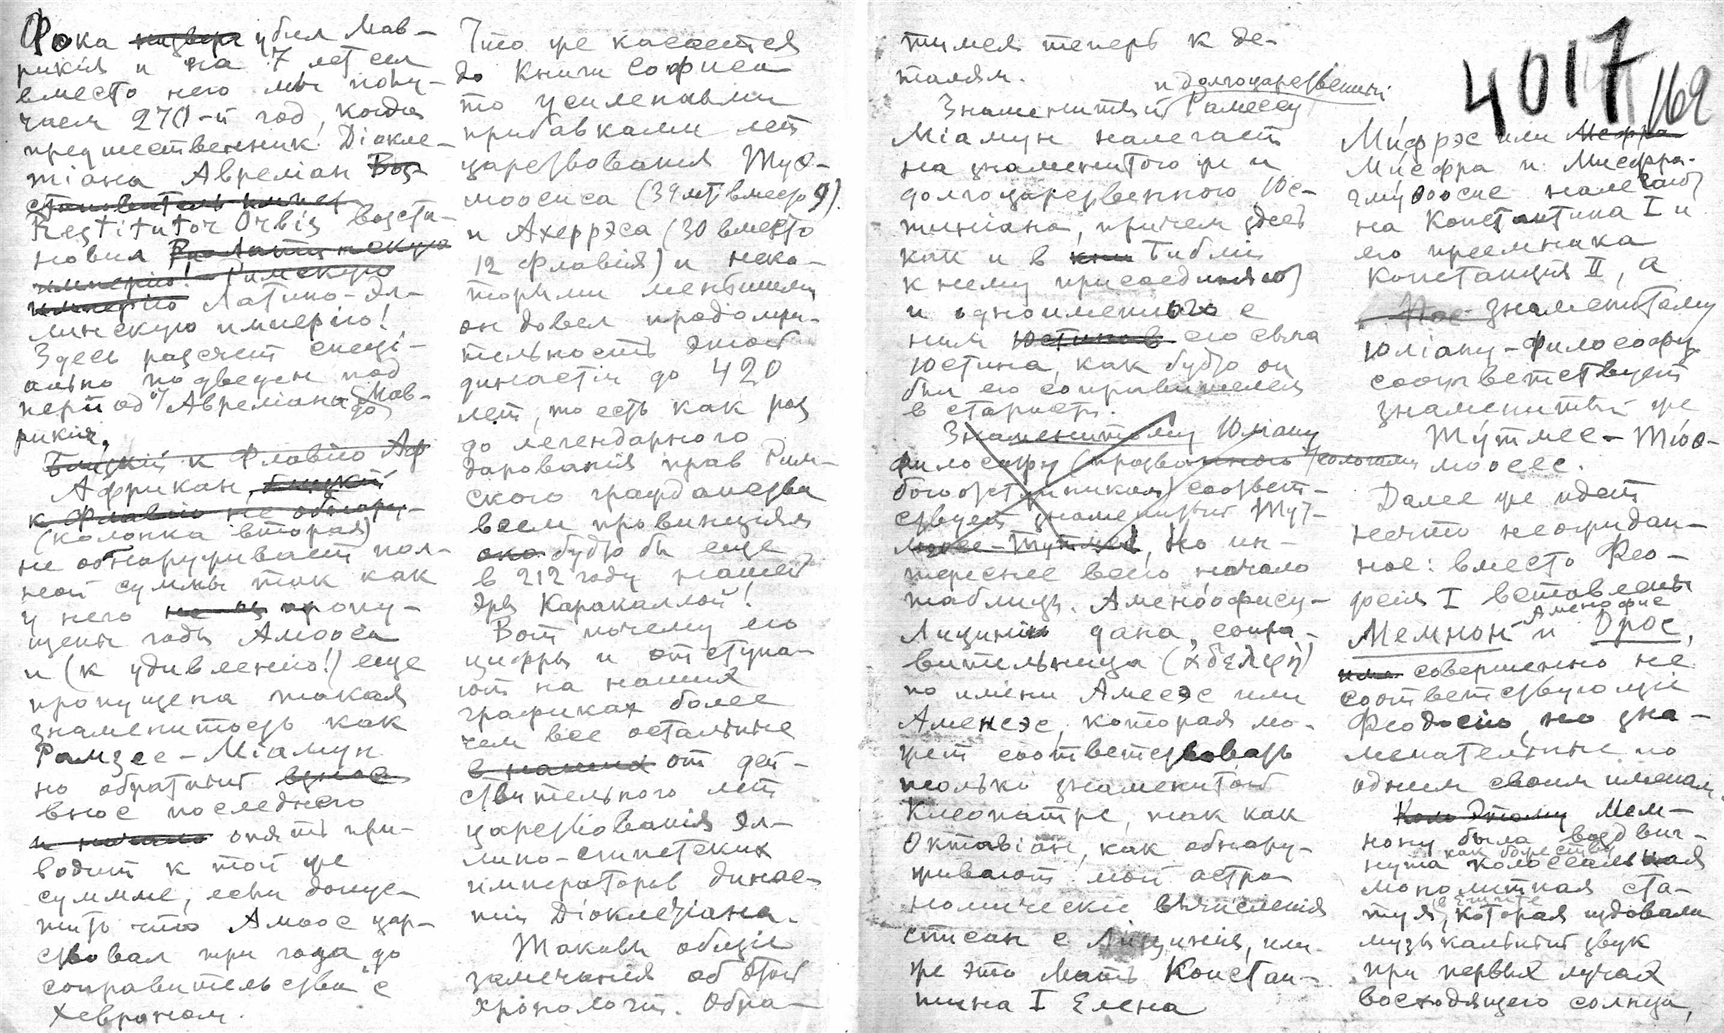 Фока изверг убил Мав-
рикія и на 7 лет сел
вместо него мы полу-
чаем 270-й год, когда
предшественник Діокле-
тіана Авреліан Воз-
становитель импер
Restitutor Orbis возста-
новил
имперію! Римскую
имперію Латино-Эл-
линскую имперію!
Здесь разсчет специ-
ально подведен под
период Авреліана до Мав-
рикія.
Близкий к Флавію Аф
Африкан близкий
к Флавию не обнару-
(колонка вторая)
не обнаруживает пол-
ной суммы так как
у него пропу-
щены годы Амооса
и (к удивленію!) еще
пропущена такая
знаменитость как
Рамзес-Міамун
но обратный
внос последнего
опять при-
водит к той же
сумме, если допус-
тить что Амоос цар-
ствовал три года до
соправительства с
Хевроном.
Что же касается
до Книги Софиса
то усиленными
прибавками лет
царствования Тут-
моосиса (39 лет вместо 9)
и Ахеррэса (30 вместо
12 Флавія) и неко-
торыми меньшими
он довел продолжи-
тельность этой
династіи до 420
лет, то есть как раз
до легендарного
дарованія прав Рим-
ского гражданства
всем провинціям
ово будто бы еще
в 212 году нашей
эры Каракаллой!
Вот почему его
цифры и отступа-
ют на наших
графиках более
чем все остальные
в наших от дей-
ствительного лет
царствованія Эл-
лино-египетских
императоров динас-
тіи Діоклетіана.
Таковы общіе
замечанія об этой
хронологіи. Обра-
тимся теперь к де-
талям.
и долгоцарственный
Знаменитый Рамессу
Міамун налегает
на знаменитого же и
долгоцарственного Юс-
тиніана, причем здесь
как и в Библіи
к нему присоединяют
и одноименного с
ним Юстинов его сына
Юстина, как будто он
был его соправителем
в старости.
Знаменитому Юліану
философу (прозванного теологами
богоотступником) соответ-
ствует знаменитый Тут-
мосес-Тутмес, Но ин-
тереснее всего начало
таблицы. Аменоофису-
Лицинію дана, сопра-
вительница (ἀδελφή)
по имени Амесэс или
Аменсэс, которая мо-
жет соответствовать
только знаменитой
Клеопатре, так как
Октавіан, как обнару-
живают мои астро-
номическіе вычисленія
списан с Лицинія, или
же это Мать Констан-
тина I Елена
4017
162
Ми́фрэс или Мефра
Ми́сфра и Мисфра-
гму́тоосис налегают
на Константина I и
его преемника
Констанція II, а
знаменитому
Юліану-Философу
соответствует
знаменитый же
Ту́тмес-Тмо-
моосес.
Далее же идет
нечто неожидан-
ное: вместо Фео-
фесія I вставлены
Аменофис
Мемнон и Орос,
совершенно не
соответствующіе
Феодосію, но зна-
менательные по
одним своим именам.
Коло Этому Мем-
нону была воздвиг-
как божеству
нута колоссальная
монолитная ста-
в Египте
туя, которая издавала
музыкальный звук
при первых лучах
восходящего солнца,